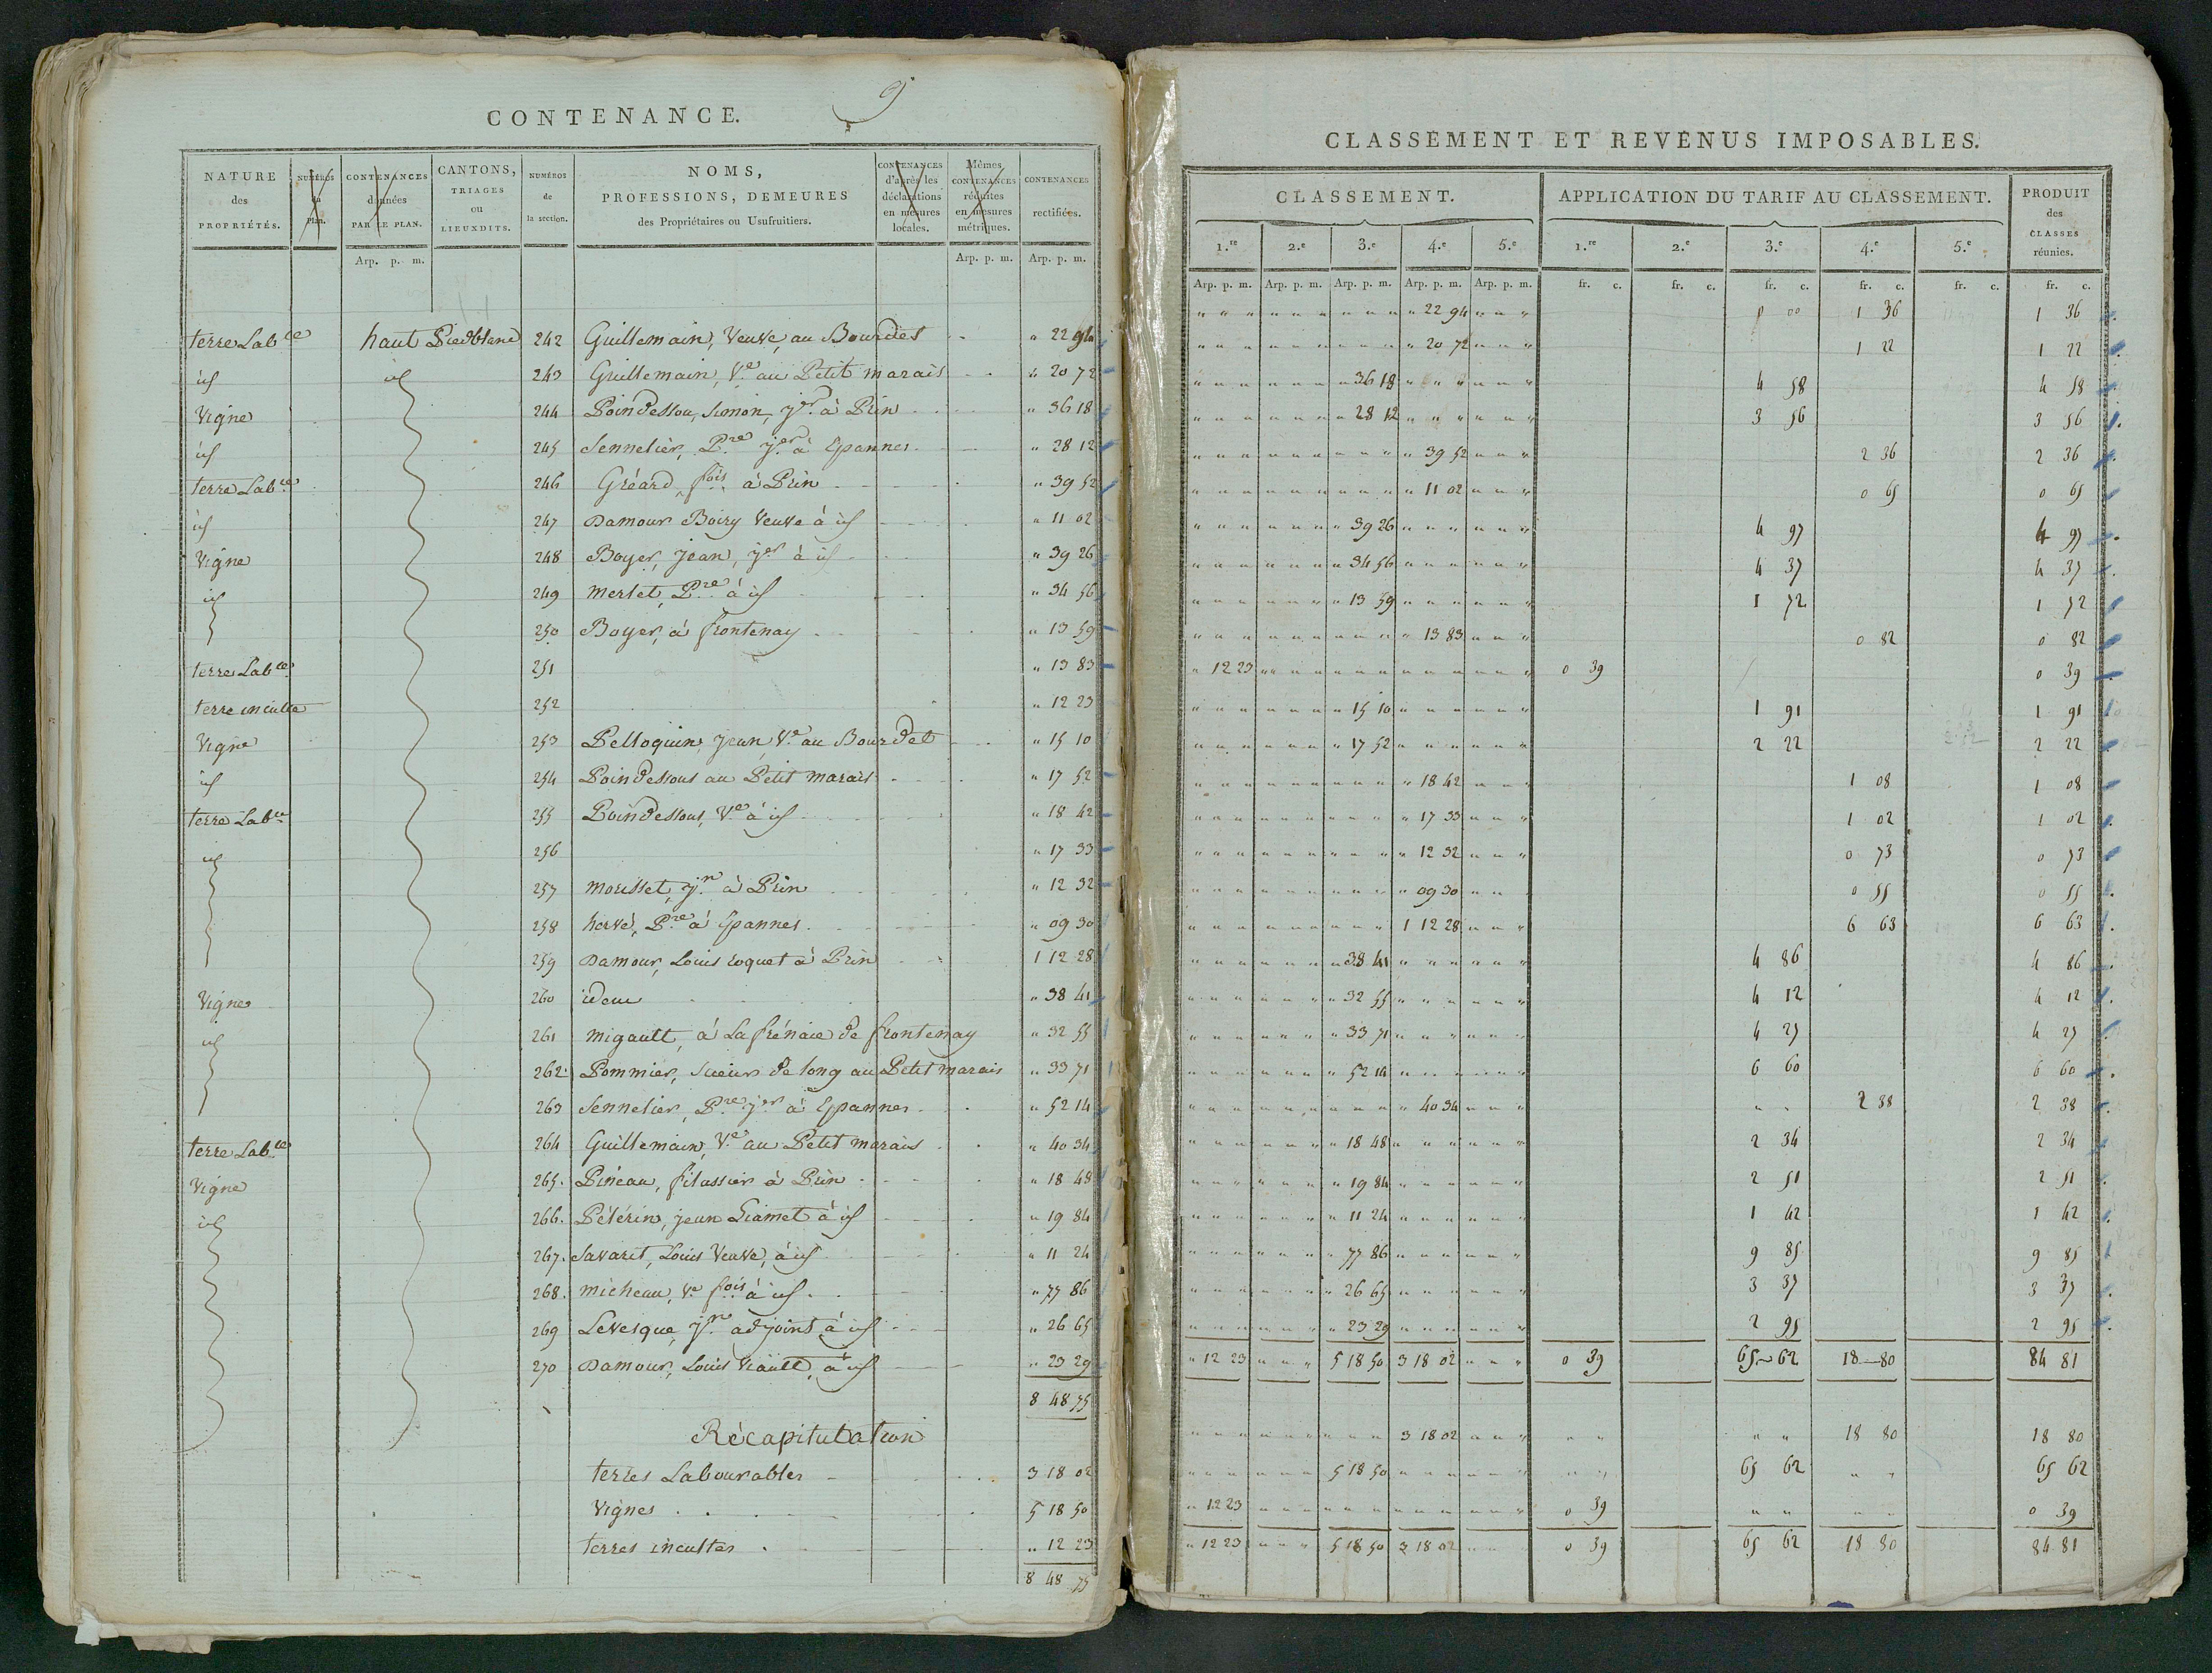 9
CONTENANCE.
NATURE des PROPRIÉTÉS. | NUMÉROS du Plan. | CONTENANCES données PAR LE PLAN. | CANTONS, TRIAGES ou LIEUXDITS. | NUMÉROS de la section. | NOMS, PROFESSIONS, DEMEURES des Propriétaires ou Usufruitiers. | CONTENANCES d'après les déclarations en mesures locales. | Mêmes CONTENANCES réduites en mesures métriques. | CONTENANCES rectifiées.
Arp. p. m. | Arp. p. m. | Arp. p. m.
terre Labce haut Piedblanc 242 Guillemain, Veuve, au Bourdet " 22 94
id id 243 Guillemain, Ve au Petit marais " 20 72
Vigne 244 Poindessou, Simon, jer à Prin " 36 18
id 245 Sennelier, Pre jer à Epannes " 28 12
terre Labce 246 Gréard, fois à Prin " 39 52
id 247 Damour Boiry Veuve à id " 11 02
Vigne 248 Boyer, jean, jer à id " 39 26
id 249 Merlet, Pre à id " 34 56
250 Boyer, à frontenay " 13 59
terre Labce 251 " 13 83
terre inculte 252 " 12 23
Vigne 253 Pelloquin, jean Ve au Bourdet " 15 10
id 254 Poindessous au Petit marais " 17 52
terre Labce 255 Poindessous, Ve à id " 18 42
id 256 " 17 33
257 Morisset, jn à Prin " 12 32
258 hervé, Pre à Epannes " 09 30
259 Damour, Louis roquet à Prin 1 12 28
Vigne 260 idem " 38 41
id 261 Migault, à La frénaie de frontenay " 32 55
262. Pommier, scieur de long au Petit marais " 33 71
263 Sennelier, Pre jer à Epannes " 52 14
terre Labce 264 Guillemain, Ve au Petit marais " 40 34
Vigne 265. Pineau, filassier à Prin " 18 48
id 266. Pélérin, jean à id " 19 84
267. Savarit, Louis Veuve, à id " 11 24
268. Micheau, Ve fois à id " 77 86
269 Levesque, jn adjoint à id " 26 65
270 Damour, Louis Viault, à id " 23 29
8 48 75
Récapitulation
terres Labourables 3 18 02
Vignes 5 18 50
terres incultes " 12 23
8 48 75
CLASSEMENT ET REVENUS IMPOSABLES.
CLASSEMENT. | APPLICATION DU TARIF AU CLASSEMENT. | PRODUIT des CLASSES réunies.
1.re | 2.e | 3.e | 4.e | 5.e | 1.re | 2.e | 3.e | 4.e | 5.e
Arp. p. m. | Arp. p. m. | Arp. p. m. | Arp. p. m. | Arp. p. m. | fr. c. | fr. c. | fr. c. | fr. c. | fr. c. | fr. c.
" 22 94 1 36 1 36
" 20 72 1 22 1 22
" 36 18 4 58 4 58
" 28 12 3 56 3 56
" 39 52 2 36 2 36
" 11 02 0 65 0 65
" 39 26 4 97 4 97
" 34 56 4 37 4 37
" 13 59 1 72 1 72
" 13 83 0 82 0 82
" 12 23 0 39 0 39
" 15 10 1 91 1 91
" 17 52 2 22 2 22
" 18 42 1 08 1 08
" 17 33 1 02 1 02
" 12 32 0 73 0 73
" 09 30 0 55 0 55
1 12 28 6 63 6 63
" 38 41 4 86 4 86
" 32 55 4 12 4 12
" 33 71 4 27 4 27
" 52 14 6 60 6 60
" 40 34 " " 2 38 2 38
" 18 48 2 34 2 34
" 19 84 2 51 2 51
" 11 24 1 42 1 42
" 77 86 9 85 9 85
" 26 65 3 37 3 37
" 23 29 2 95 2 95
" 12 23 " " " 5 18 50 3 18 02 " " " 0 39 65 62 18 80 84 81
3 18 02 " " " " 18 80 18 80
5 18 50 " " 65 62 " " 65 62
" 12 23 0 39 " " " " 0 39
" 12 23 " " " 5 18 50 3 18 02 " " 0 39 65 62 18 80 84 81